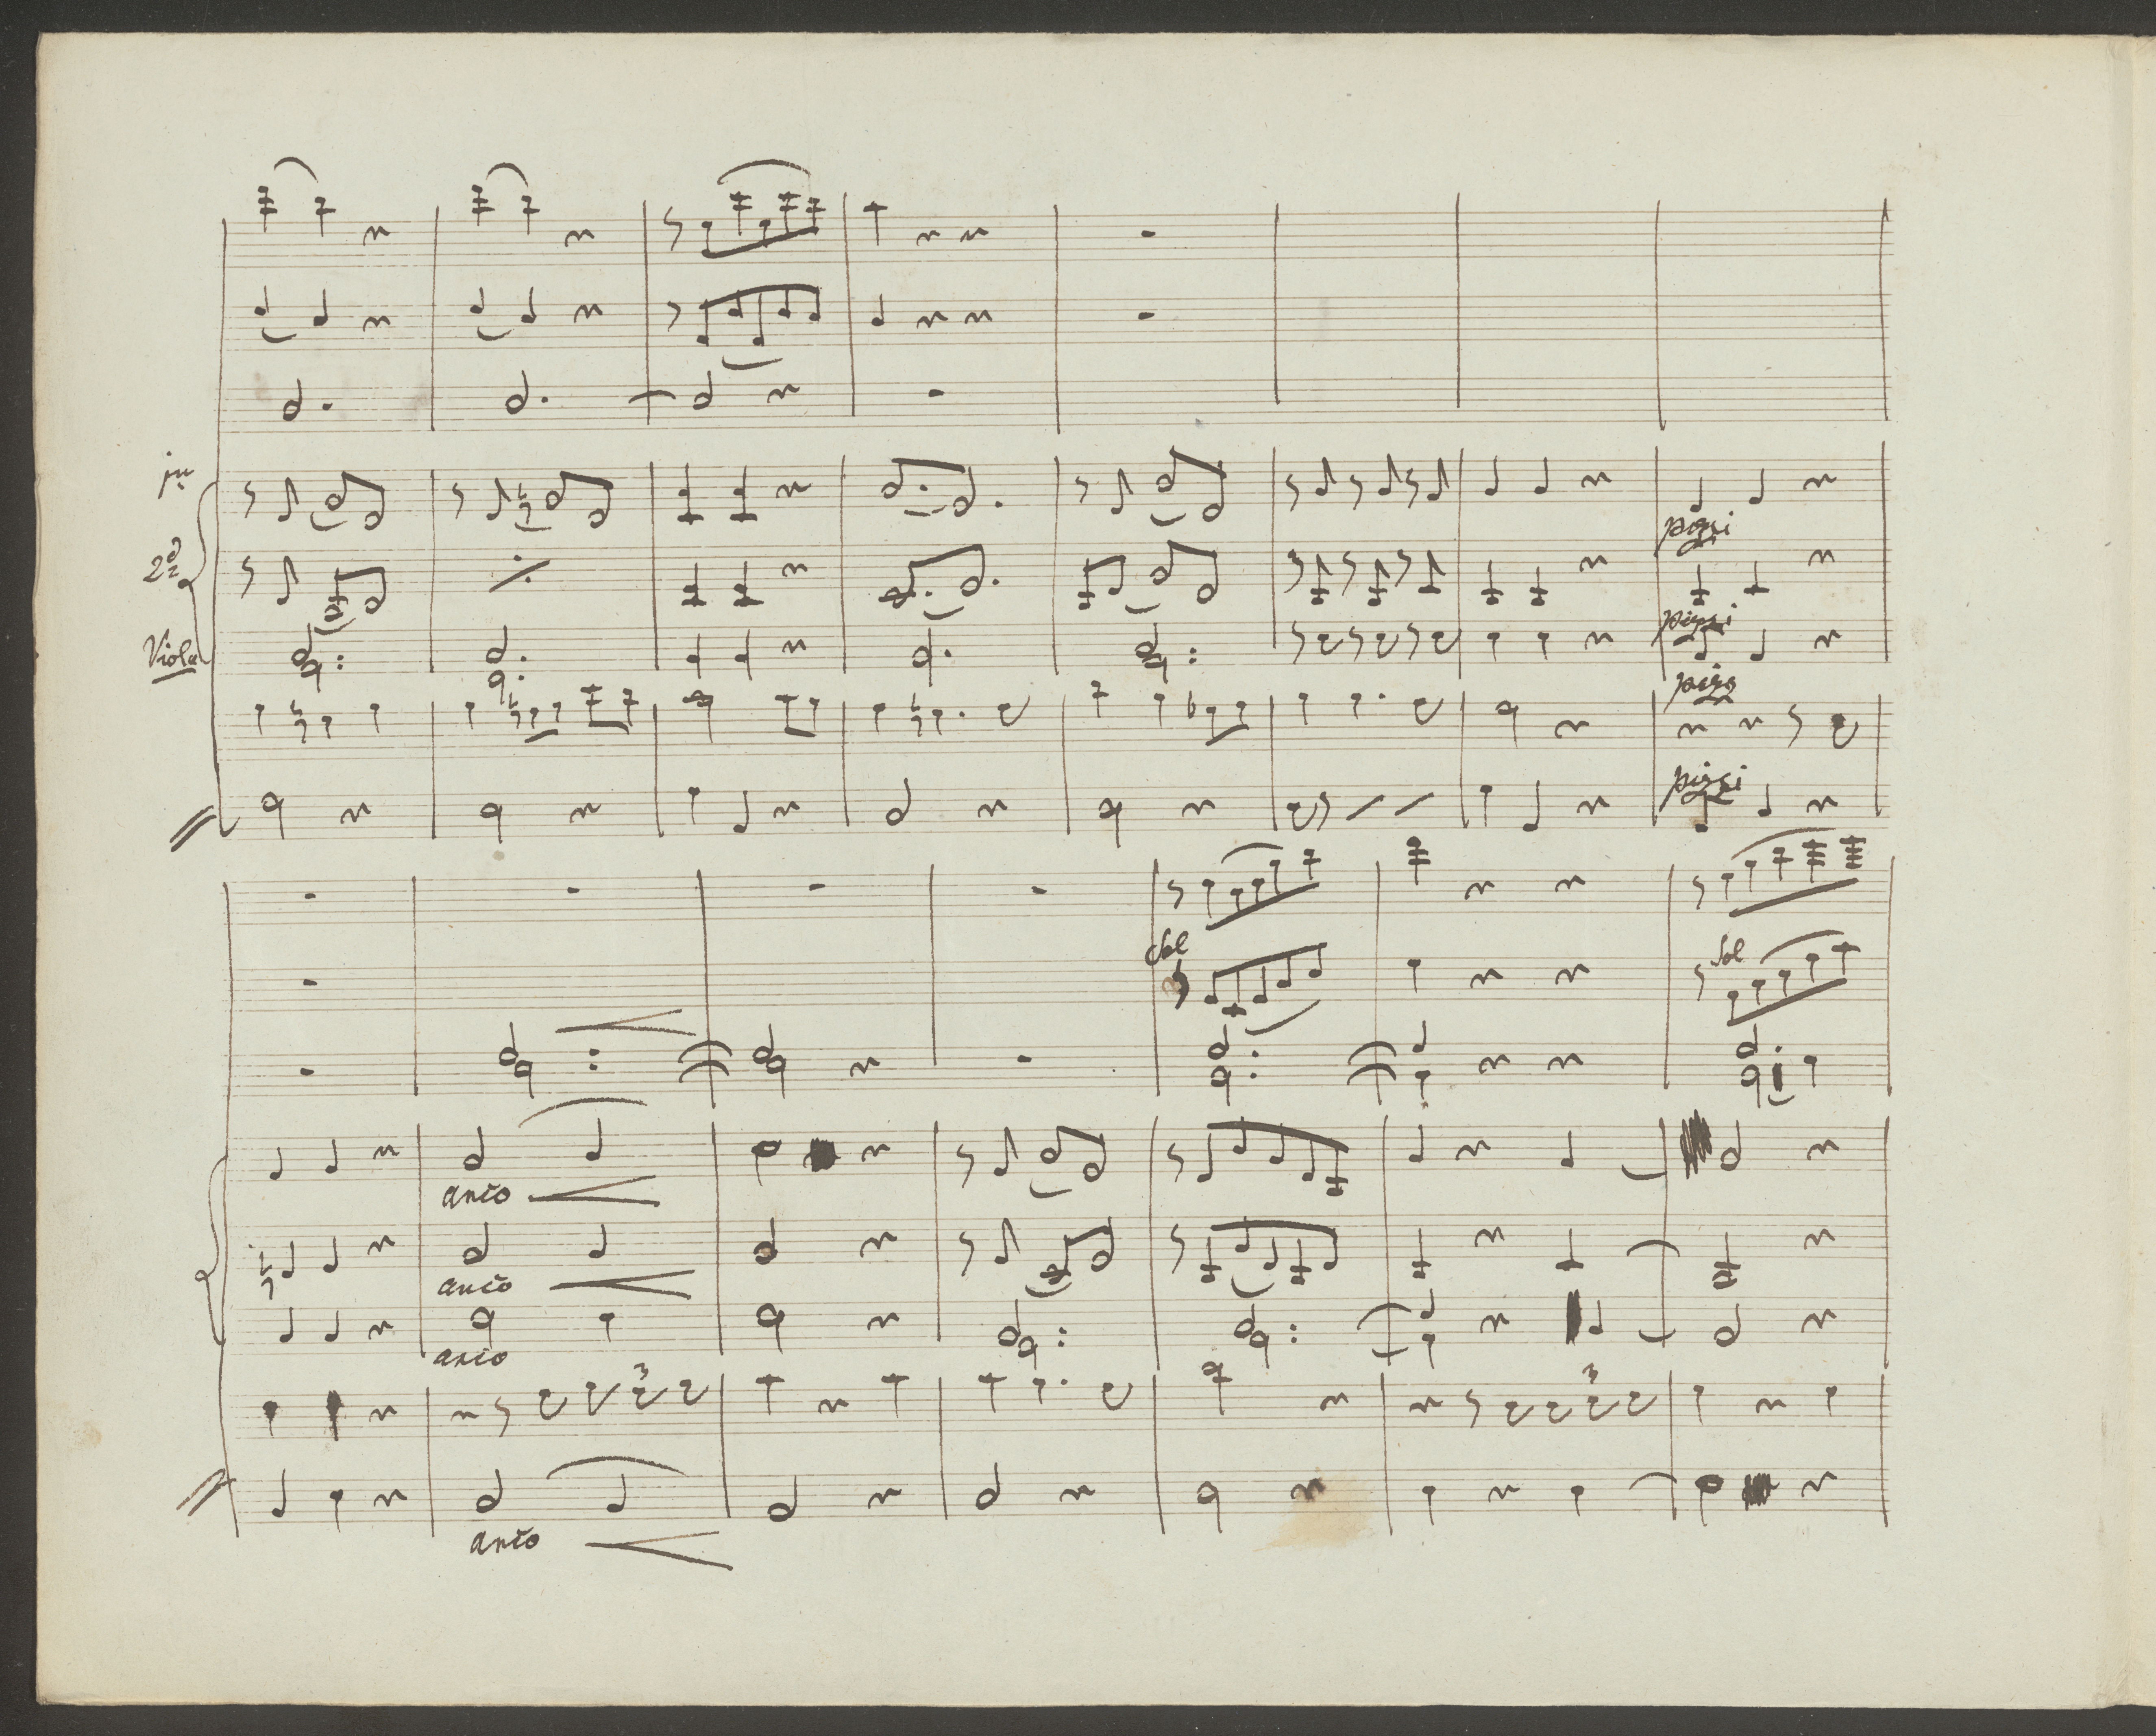 2d
Viola
pizzi
pizzi
pizzi
Sol
Sol
arco
arco
arco
3
3
arco